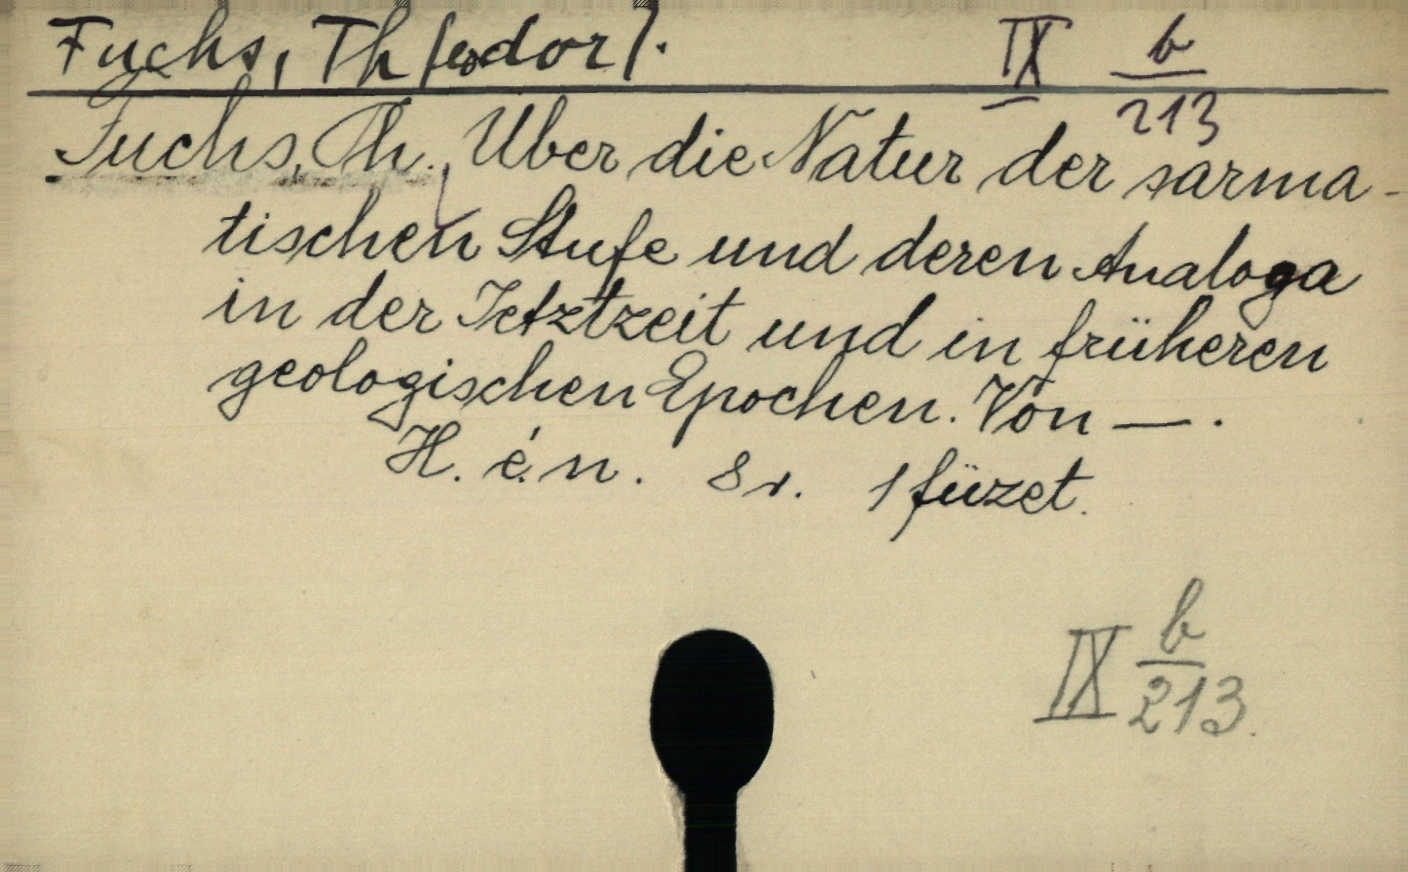 Fuchs, Th[eodor]. IX b/213
Fuchs, Th., Über die Natur der sarma-
tischen Stufe und deren Analoga
in der Jetztzeit und in früheren
geologischen Epochen. Von —.
H. é. n. 8r. 1 füzet.
IX b/213.